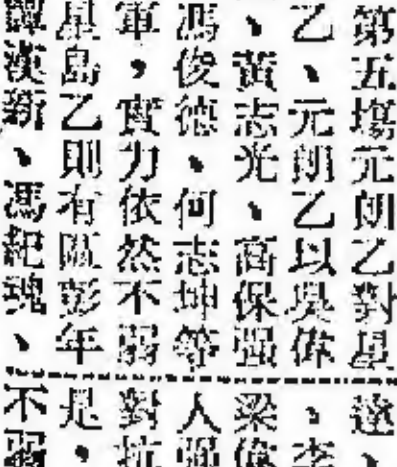 第五塲元朗乙對星
乙、元朗乙以吳偉
、黃志光、高保強
馮俊德、何志坤等
軍,實力依然不弱
星島乙則有彭年
譚漢新、馮紀魂、
、
、李
梁偉
人強
對抗
是,
不弱